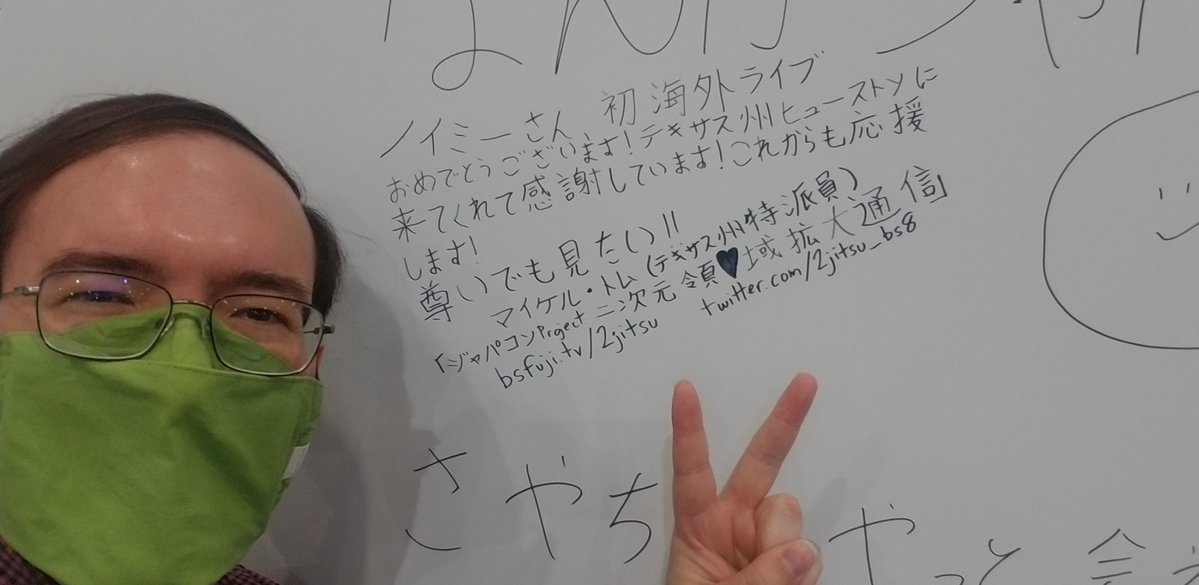 ノイミーさん 初海外ライブ
おめでとうございます!テキサス州ヒューストンに
来てくれて感謝しています!これからも応援
します!
尊いでも見たい!!
マイケル・トム(テキサス州特派員)
「ジャパコンProject 二次元領♥域拡大通信」
bsfuji.tv/2jitsu twitter.com/2jitsu_bs8
さやち
やっと会